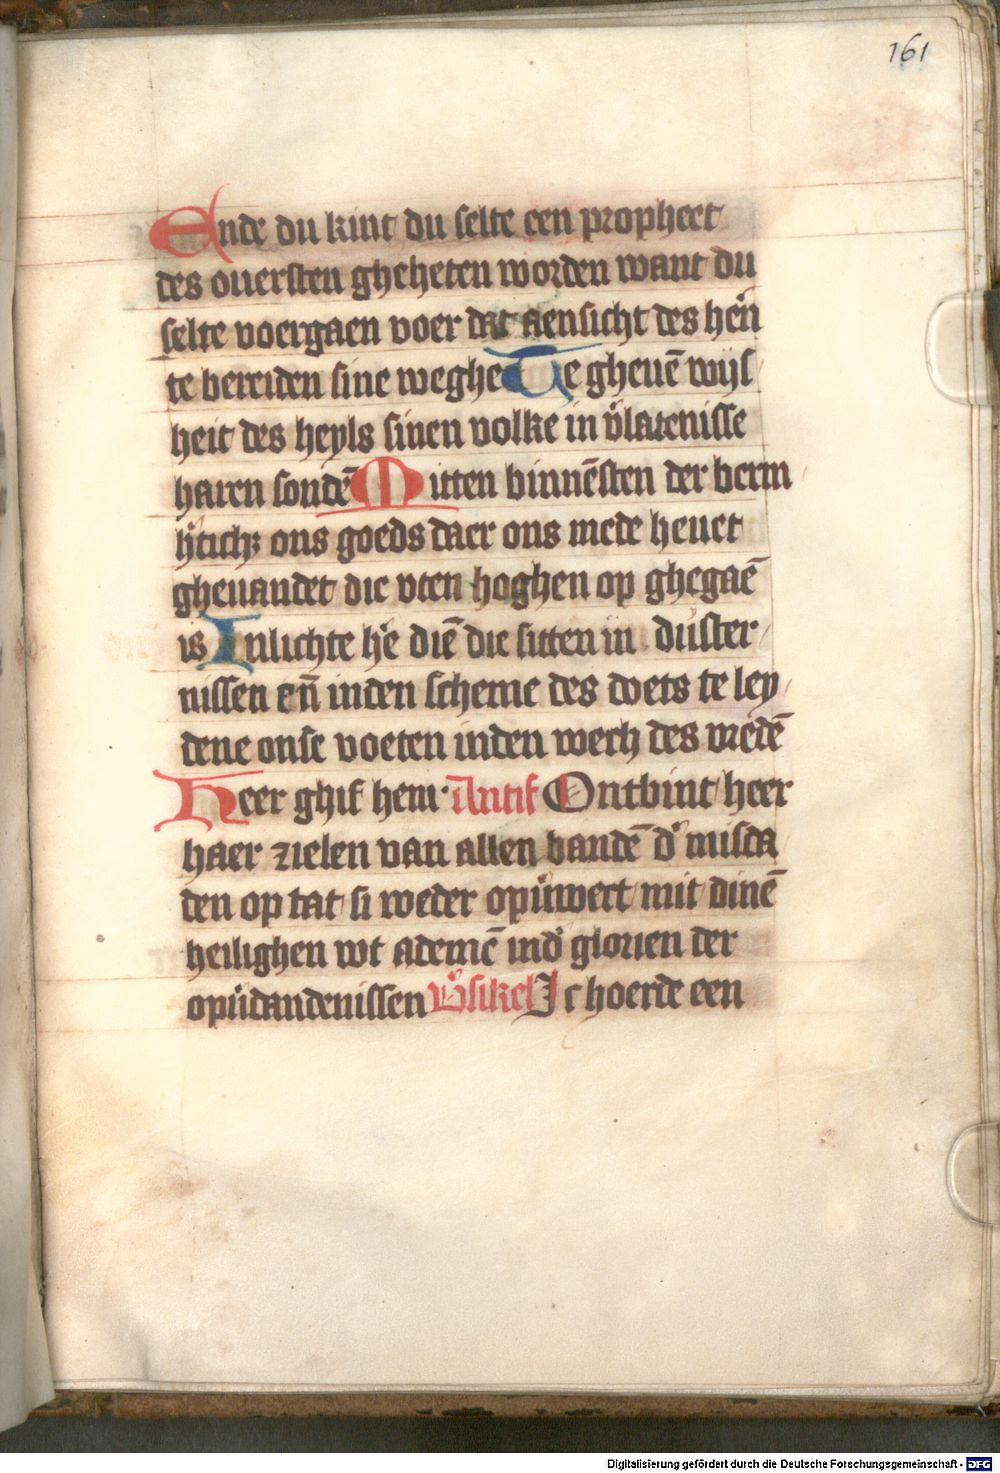 161
Ende du kint du selte een propheet
des ouersten gheheten worden want du
selte voergaen voer dat aensicht des hēn
te bereiden sine weghe Te gheuē wijs
heit des heyls sinen volke in v̄latenisse
haren sondē Mitten binnēsten der berm
ons goeds daer ons mede heuet
gheuandet die vten hoghen op ghegaē
is Inlichte h̄e diē die sitten in duister
nissen en̄ inden scheme des doets te ley
dene onse voeten inden wech des vredē
Heer ghif hem Antif Ontbint heer
haer zielen van allen bandē d̄ misda
den op tat si weder verwect mit dinē
heilighen wt ademē ind̄ glorien der
opv̄standenissen V̄sikel Ic hoerde een
Digitalisierung gefördert durch die Deutsche Forschungsgemeinschaft - DFG